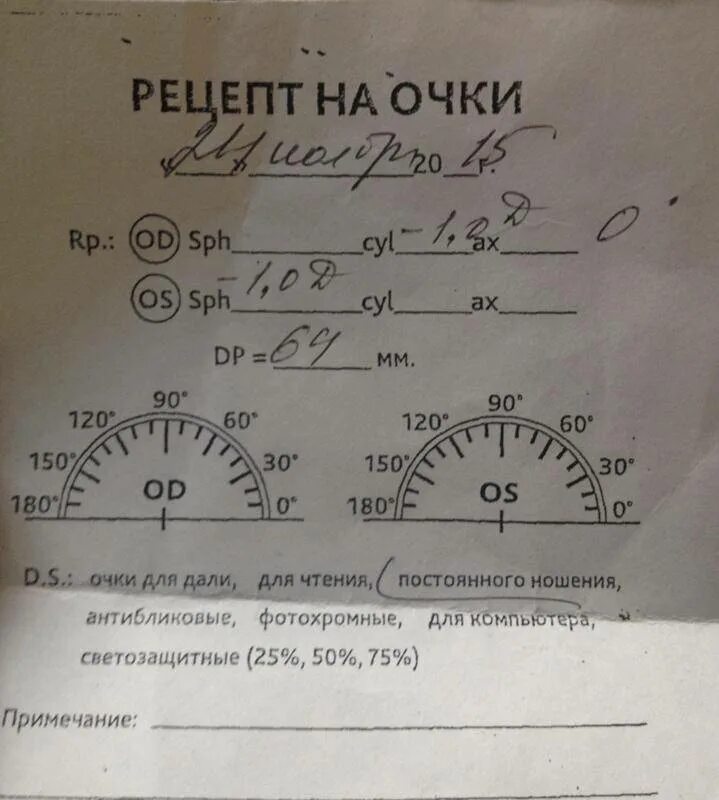 РЕЦЕПТ НА ОЧКИ
"21" ноябрь 2015г.
Rp.: OD Sph______cyl -1,0 D ax______ 0°
OS Sph -1,0 D cyl______ax______
DP = 64 мм.
90° 90°
120° 60° 120° 60°
150° 30° 150° 30°
180° OD 0° 180° OS 0°
D.S.: очки для дали, для чтения, постоянного ношения,
антибликовые, фотохромные, для компьютера,
светозащитные (25%, 50%, 75%)
Примечание: